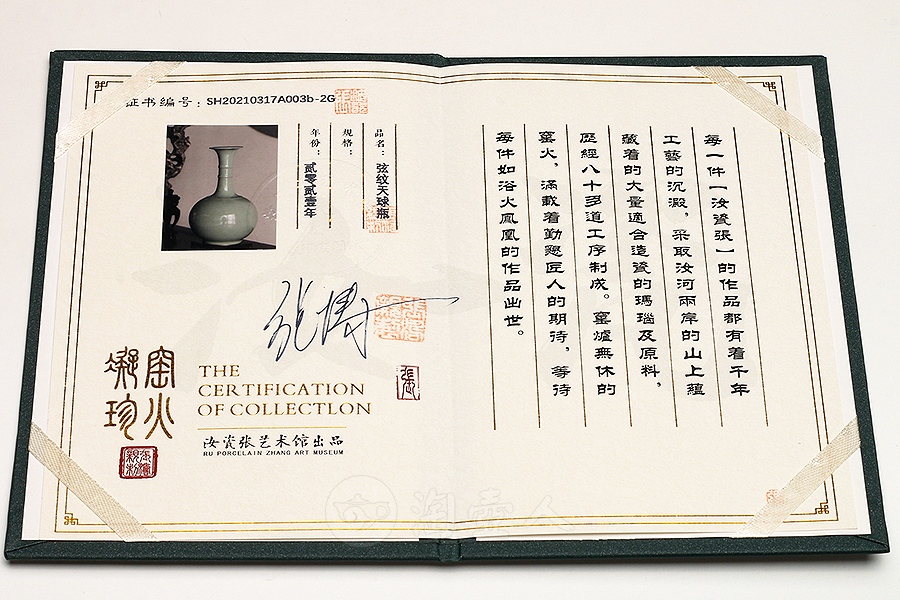 证书编号：SH20210317A003b-2G
品名：弦纹天球瓶
规格：
年份：贰零贰壹年
窑火
凝珍
THE
CERTIFICATION
OF COLLECTLON
汝瓷张艺术馆出品
RU PORCELAIN ZHANG ART MUSEUM
張
每一件【汝瓷張】的作品都有着千年
工藝的沉澱，采取汝河兩岸的山上蘊
藏着的大量適合造瓷的瑪瑙及原料，
歷經八十多道工序制成。窯爐無休的
窯火，滿載着勤懇匠人的期待，等待
每件如浴火鳳凰的作品出世。